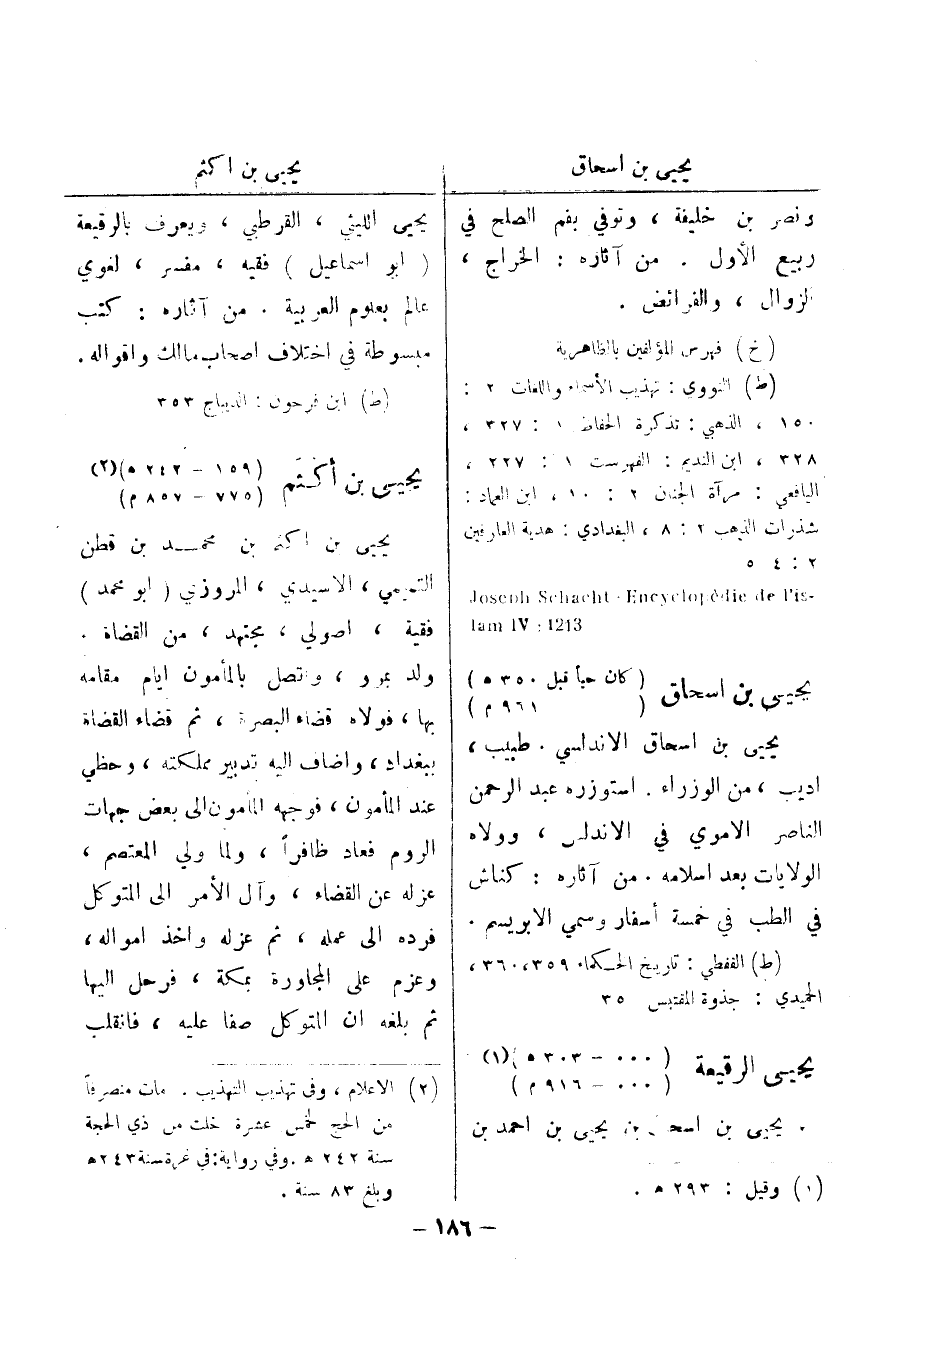 يحيى بن اسحاق
ونصر بن خليفة ، وتوفي بفم الصلح في
ربيع الأول . من آثاره : الخراج ،
الزوال ، والفرائض .
(خ) فهرس المؤلفين بالظاهرية
(ط) النووي : تهذيب الأسماء واللغات ٢ :
١٥٠ ، الذهبي : تذكرة الحفاظ ١ : ٣٢٧ ،
٣٢٨ ، ابن النديم : الفهرست ١ : ٢٢٧ ،
اليافعي : مرآة الجنان ٢ : ١٠ ، ابن العماد :
شذرات الذهب ٢ : ٨ ، البغدادي : هدية العارفين
٢ : ٥٤
Joseph Schacht : Encyclopédie de l'is-
lam IV : 1213
يحيى بن اسحاق ( كان حياً قبل ٣٥٠ ه )
( ٩٦١ م )
يحيى بن اسحاق الاندلسي . طبيب ،
اديب ، من الوزراء . استوزره عبد الرحمن
الناصر الاموي في الاندلس ، وولاه
الولايات بعد اسلامه . من آثاره : كناش
في الطب في خمسة أسفار وسمي الابريسم .
(ط) القفطي : تاريخ الحكماء ٣٥٩ ، ٣٦٠ ،
الحميدي : جذوة المقتبس ٣٥
يحيى الرقيعة ( ٠٠٠ – ٣٠٣ ه )(١)
( ٠٠٠ – ٩١٦ م )
. يحيى بن اسحق بن يحيى بن احمد بن
(١) وقيل : ٢٩٣ ه .
يحيى بن اكثم
يحيى الليثي ، القرطبي ، ويعرف بالرقيعة
( ابو اسماعيل ) فقيه ، مفسر ، لغوي
عالم بعلوم العربية . من آثاره : كتب
مبسوطة في اختلاف اصحاب مالك واقواله .
(ط) ابن فرحون : الديباج ٣٥٣
يحيى بن أكثم (١٥٩ – ٢٤٢ ه)(٢)
(٧٧٥ – ٨٥٧ م)
يحيى بن اكثم بن محمد بن قطن
التميمي ، الاسيدي ، المروزي ( ابو محمد )
فقيه ، اصولي ، مجتهد ، من القضاة .
ولد بمرو ، واتصل بالمأمون ايام مقامه
بها ، فولاه قضاء البصرة ، ثم قضاء القضاة
ببغداد ، واضاف اليه تدبير مملكته ، وحظي
عند المأمون ، فوجهه المأمون الى بعض جهات
الروم فعاد ظافراً ، ولما ولي المعتصم ،
عزله عن القضاء ، وآل الأمر الى المتوكل
فرده الى عمله ، ثم عزله واخذ امواله ،
وعزم على المجاورة بمكة ، فرحل اليها
ثم بلغه ان المتوكل صفا عليه ، فانقلب
(٢) الاعلام ، وفي تهذيب التهذيب . مات منصرفاً
من الحج لخمس عشرة خلت من ذي الحجة
سنة ٢٤٢ ه . وفي رواية : في غرة سنة ٢٤٣ ه
وبلغ ٨٣ سنة .
– ١٨٦ –